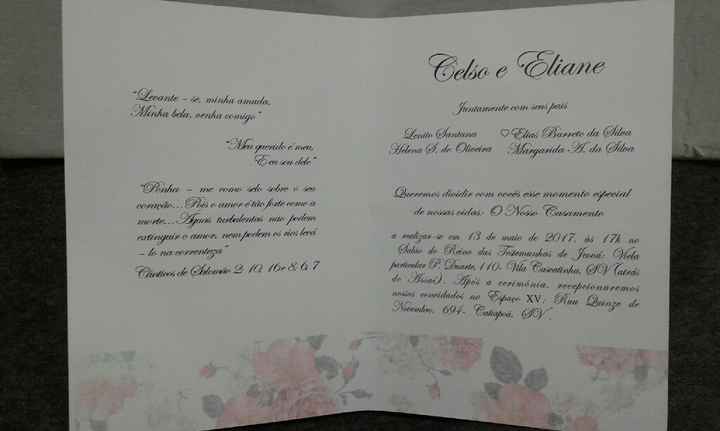 "Levante - se, minha amada,
Minha bela, venha comigo"
"Meu querido é meu,
E eu sou dele"
"Ponha - me como selo sobre o seu
coração...Pois o amor é tão forte como a
morte...Águas turbulentas não podem
extinguir o amor, nem podem os rios levá
- lo na correnteza"
Cânticos de Salomão 2: 10, 16 e 8: 6, 7
Celso e Eliane
Juntamente com seus pais
Lenito Santana ♡ Elias Barreto da Silva
Helena S. de Oliveira Margarida A. da Silva
Queremos dividir com vocês esse momento especial
de nossas vidas: O Nosso Casamento
a realizar-se em 13 de maio de 2017, às 17h no
Salão do Reino das Testemunhas de Jeová: Viela
particular P. Duarte, 110- Vila Cascatinha, SV (atrás
do Assaí). Após a cerimônia, recepcionaremos
nossos convidados no Espaço XV: Rua Quinze de
Novembro, 694- Catiapoã, SV.